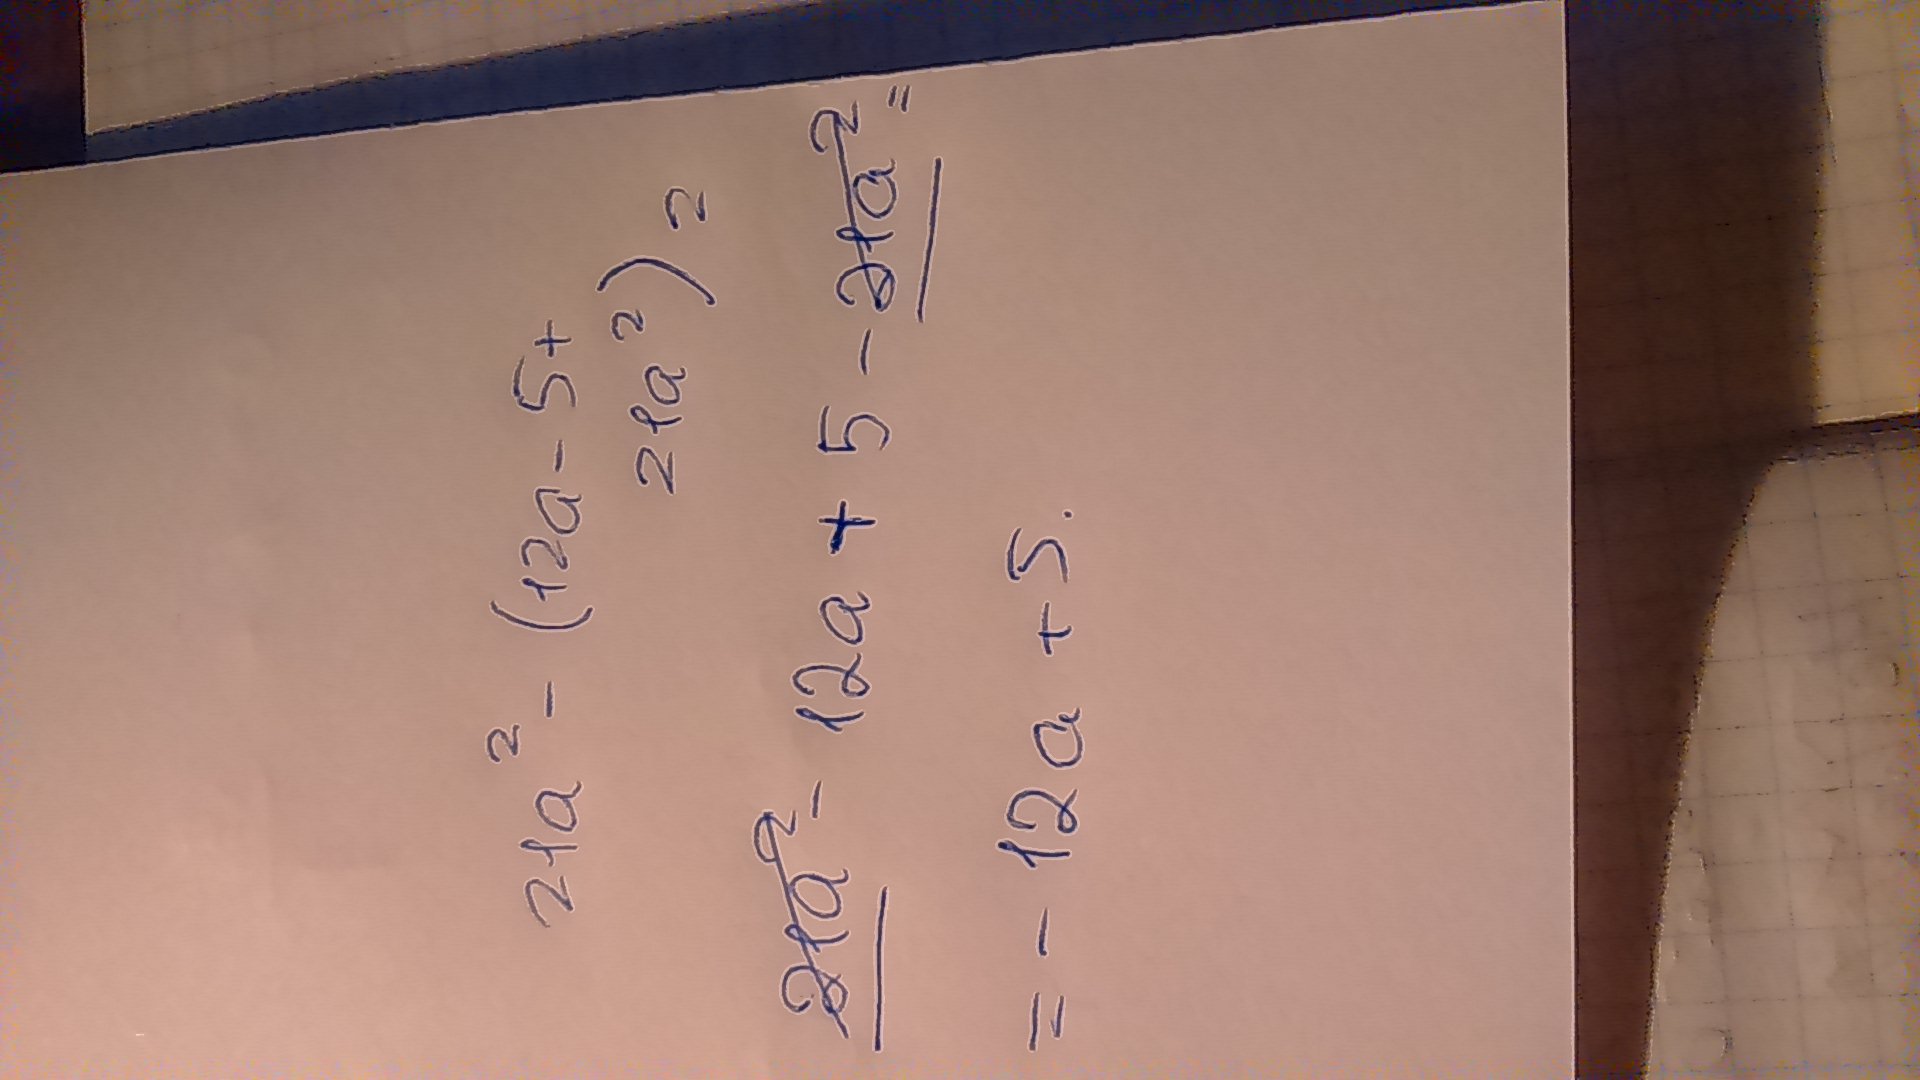 21a² - (12a - 5+
21a²) =
21a² - 12a + 5 - 21a² =
= - 12a + 5.